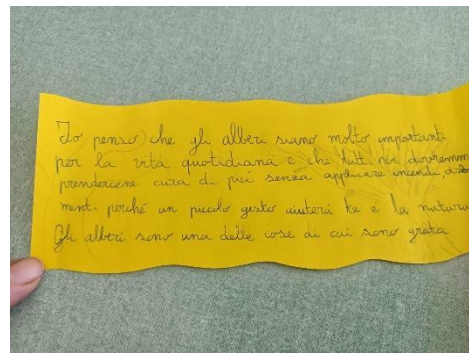 Io penso che gli alberi siano molto importanti
per la vita quotidiana e che tutti noi dovremm
prendercene cura di più senza applicare incendi
menti perché un piccolo gesto aiuterà te e la natura
Gli alberi sono una delle cose di cui sono grata